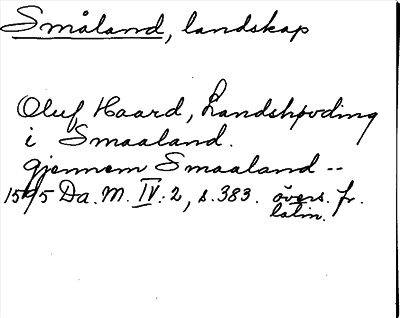 Småland, landskap
Oluf Haard, Landshövding
i Smaaland.
Gjennem Smaaland --
Da. M. IV: 2, s. 383. övers. fr.
latin.